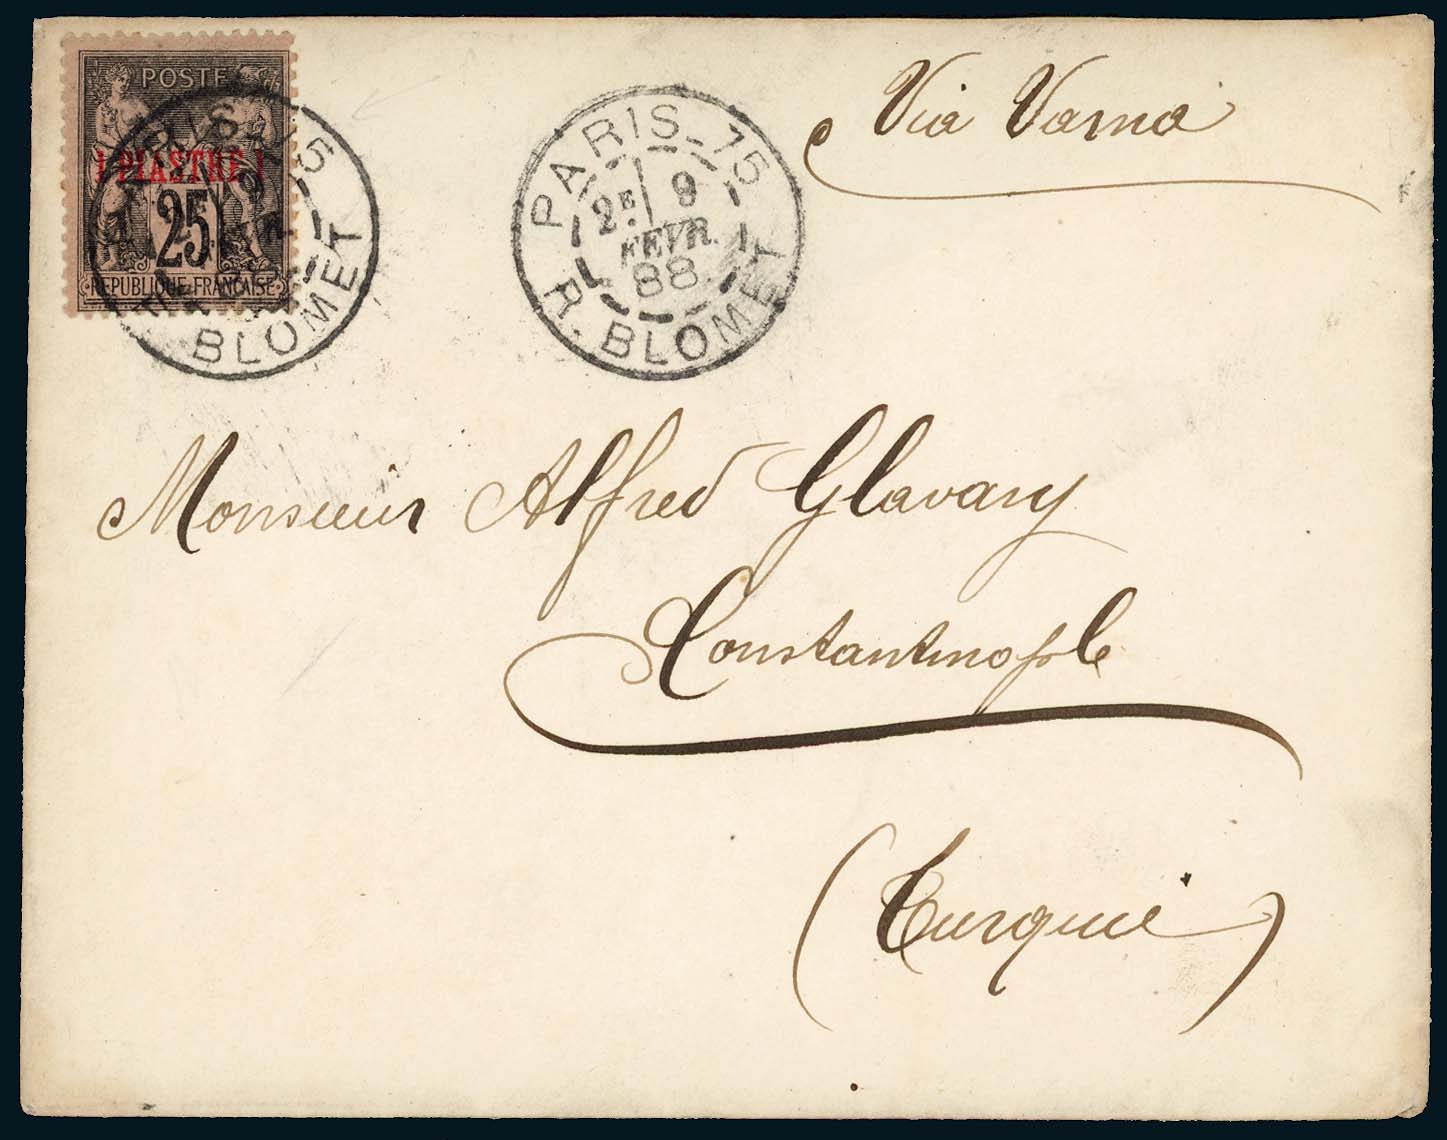 POSTE
1 PIASTRE 1
25
REPUBLIQUE FRANÇAISE
PARIS 15
BLOMET
PARIS_15
2E 9
FEVR.
88
R. BLOMET
Via Varna
Monsieur Alfred Glavany
Constantinople
(Turquie)